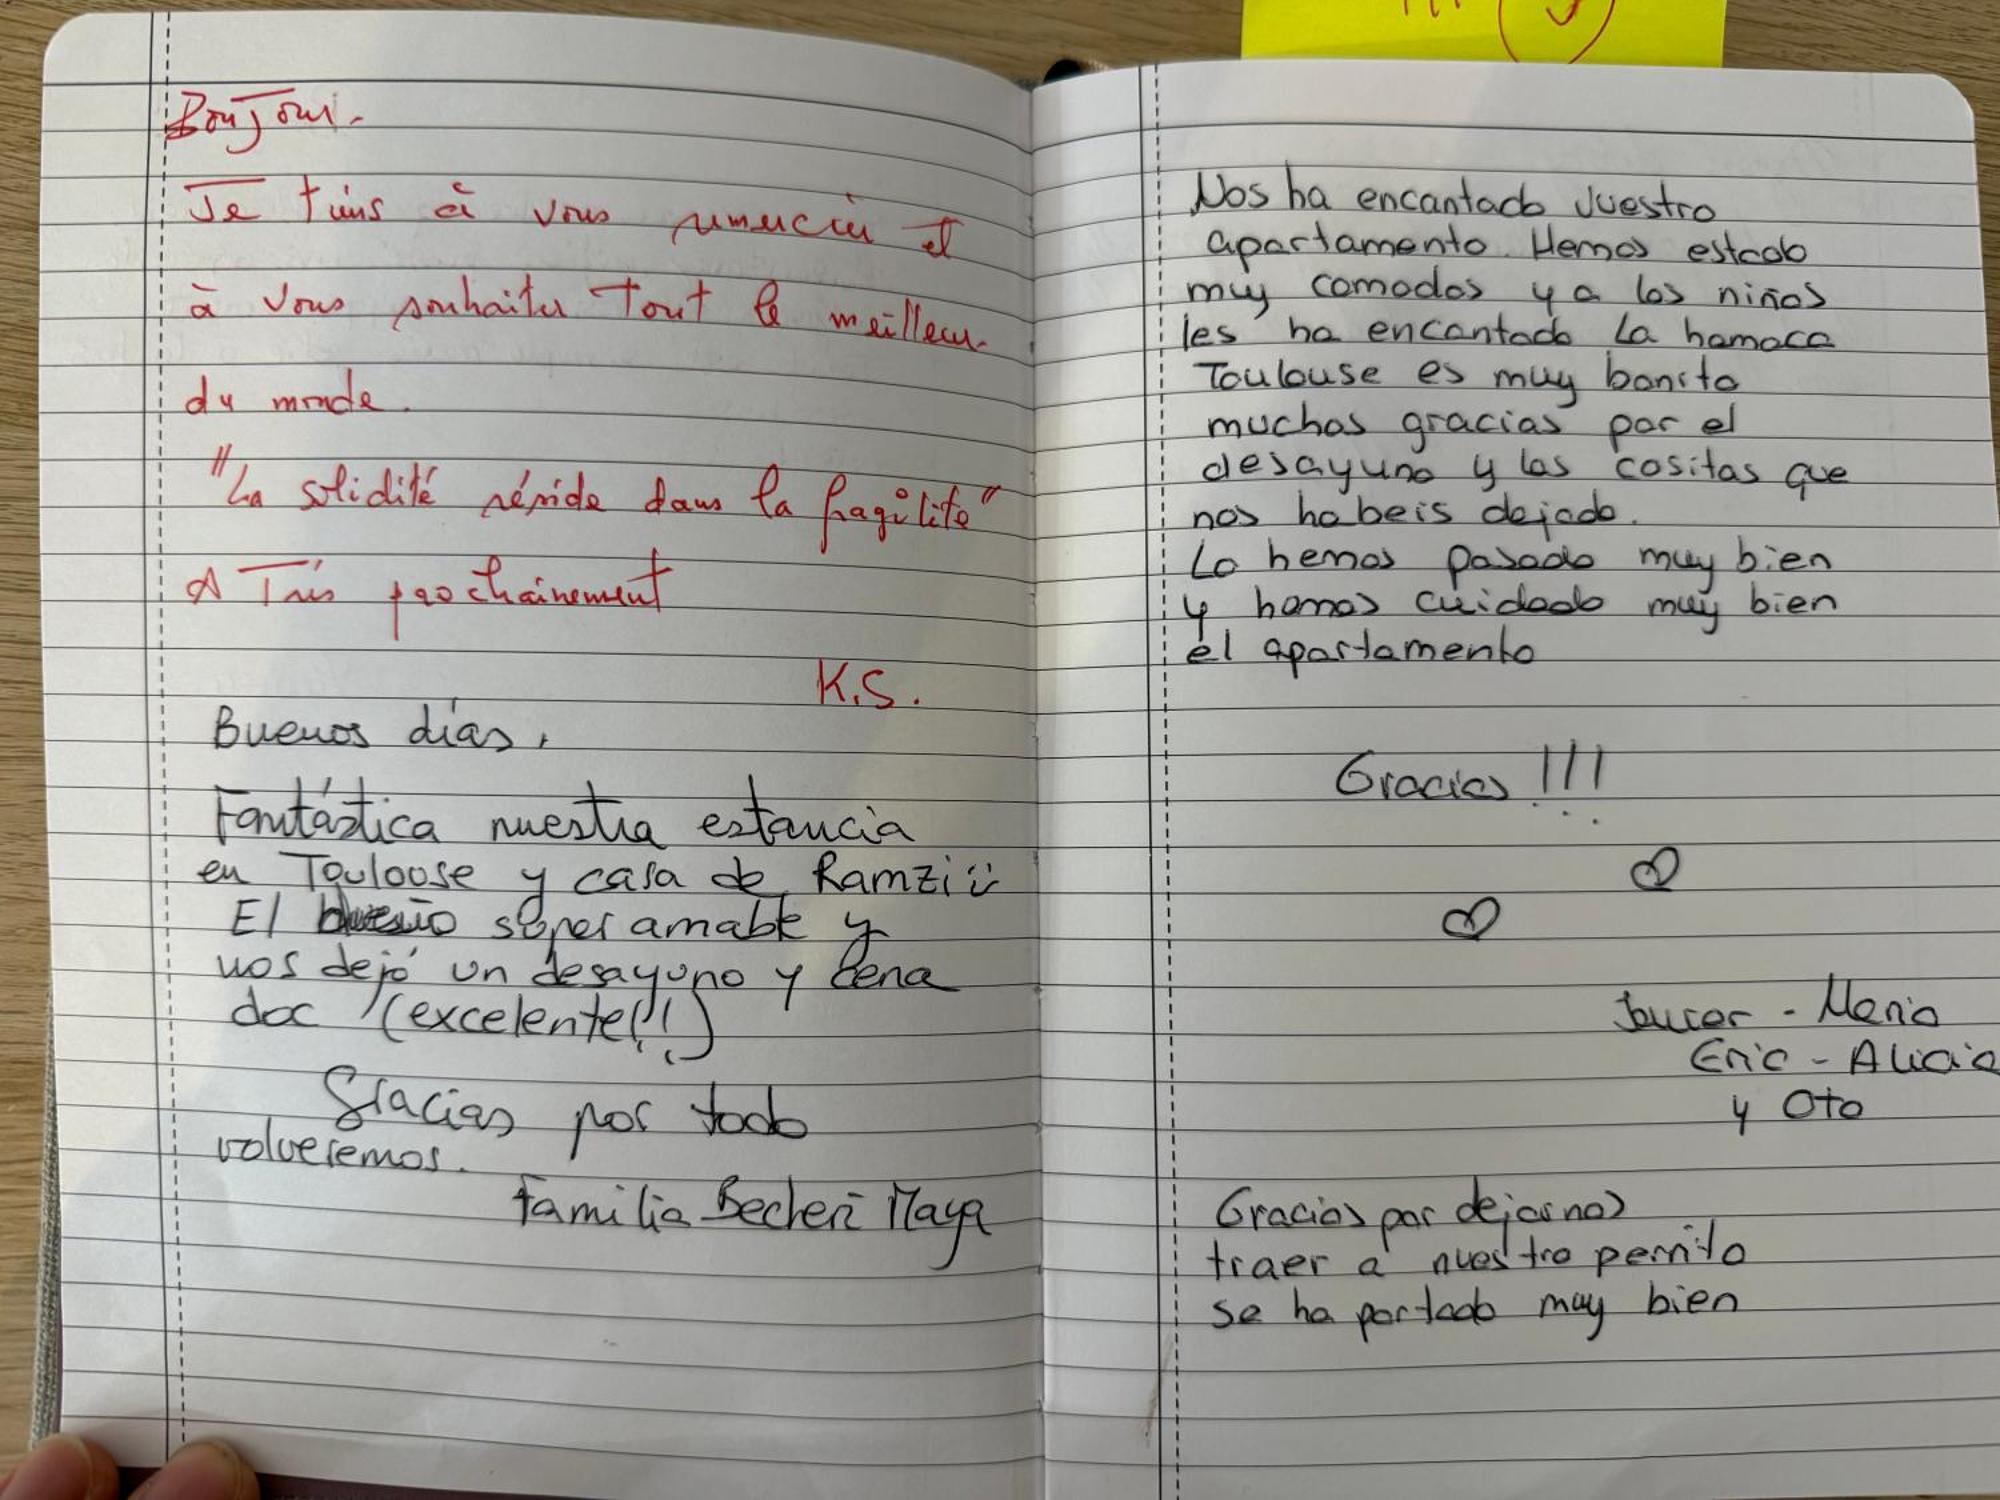 Bonjour.
Je tiens à vous remercier et
à vous souhaiter Tout le meilleur
du monde.
"La solidité réside dans la fragilité"
A Très prochainement
K.S.
Buenos días,
Fantástica nuestra estancia
en Touloose y casa de Ramzi
El dueño super amable y
nos dejó un desayuno y cena
doc (excelente!!)
Gracias por todo
volveremos.
Familia Becheri Maya
Nos ha encantado vuestro
apartamento. Hemos estado
muy comodos y a los niños
les ha encantado la hamaca
Toulouse es muy bonito
muchas gracias por el
desayuno y las cositas que
nos habeis dejado.
Lo hemos pasado muy bien
y hamos cuidado muy bien
el apartamento
Gracias !!!
- Maria
Eric - Alicia
y Oto
Gracias por dejarnos
traer a nuestro perrito
se ha portado muy bien